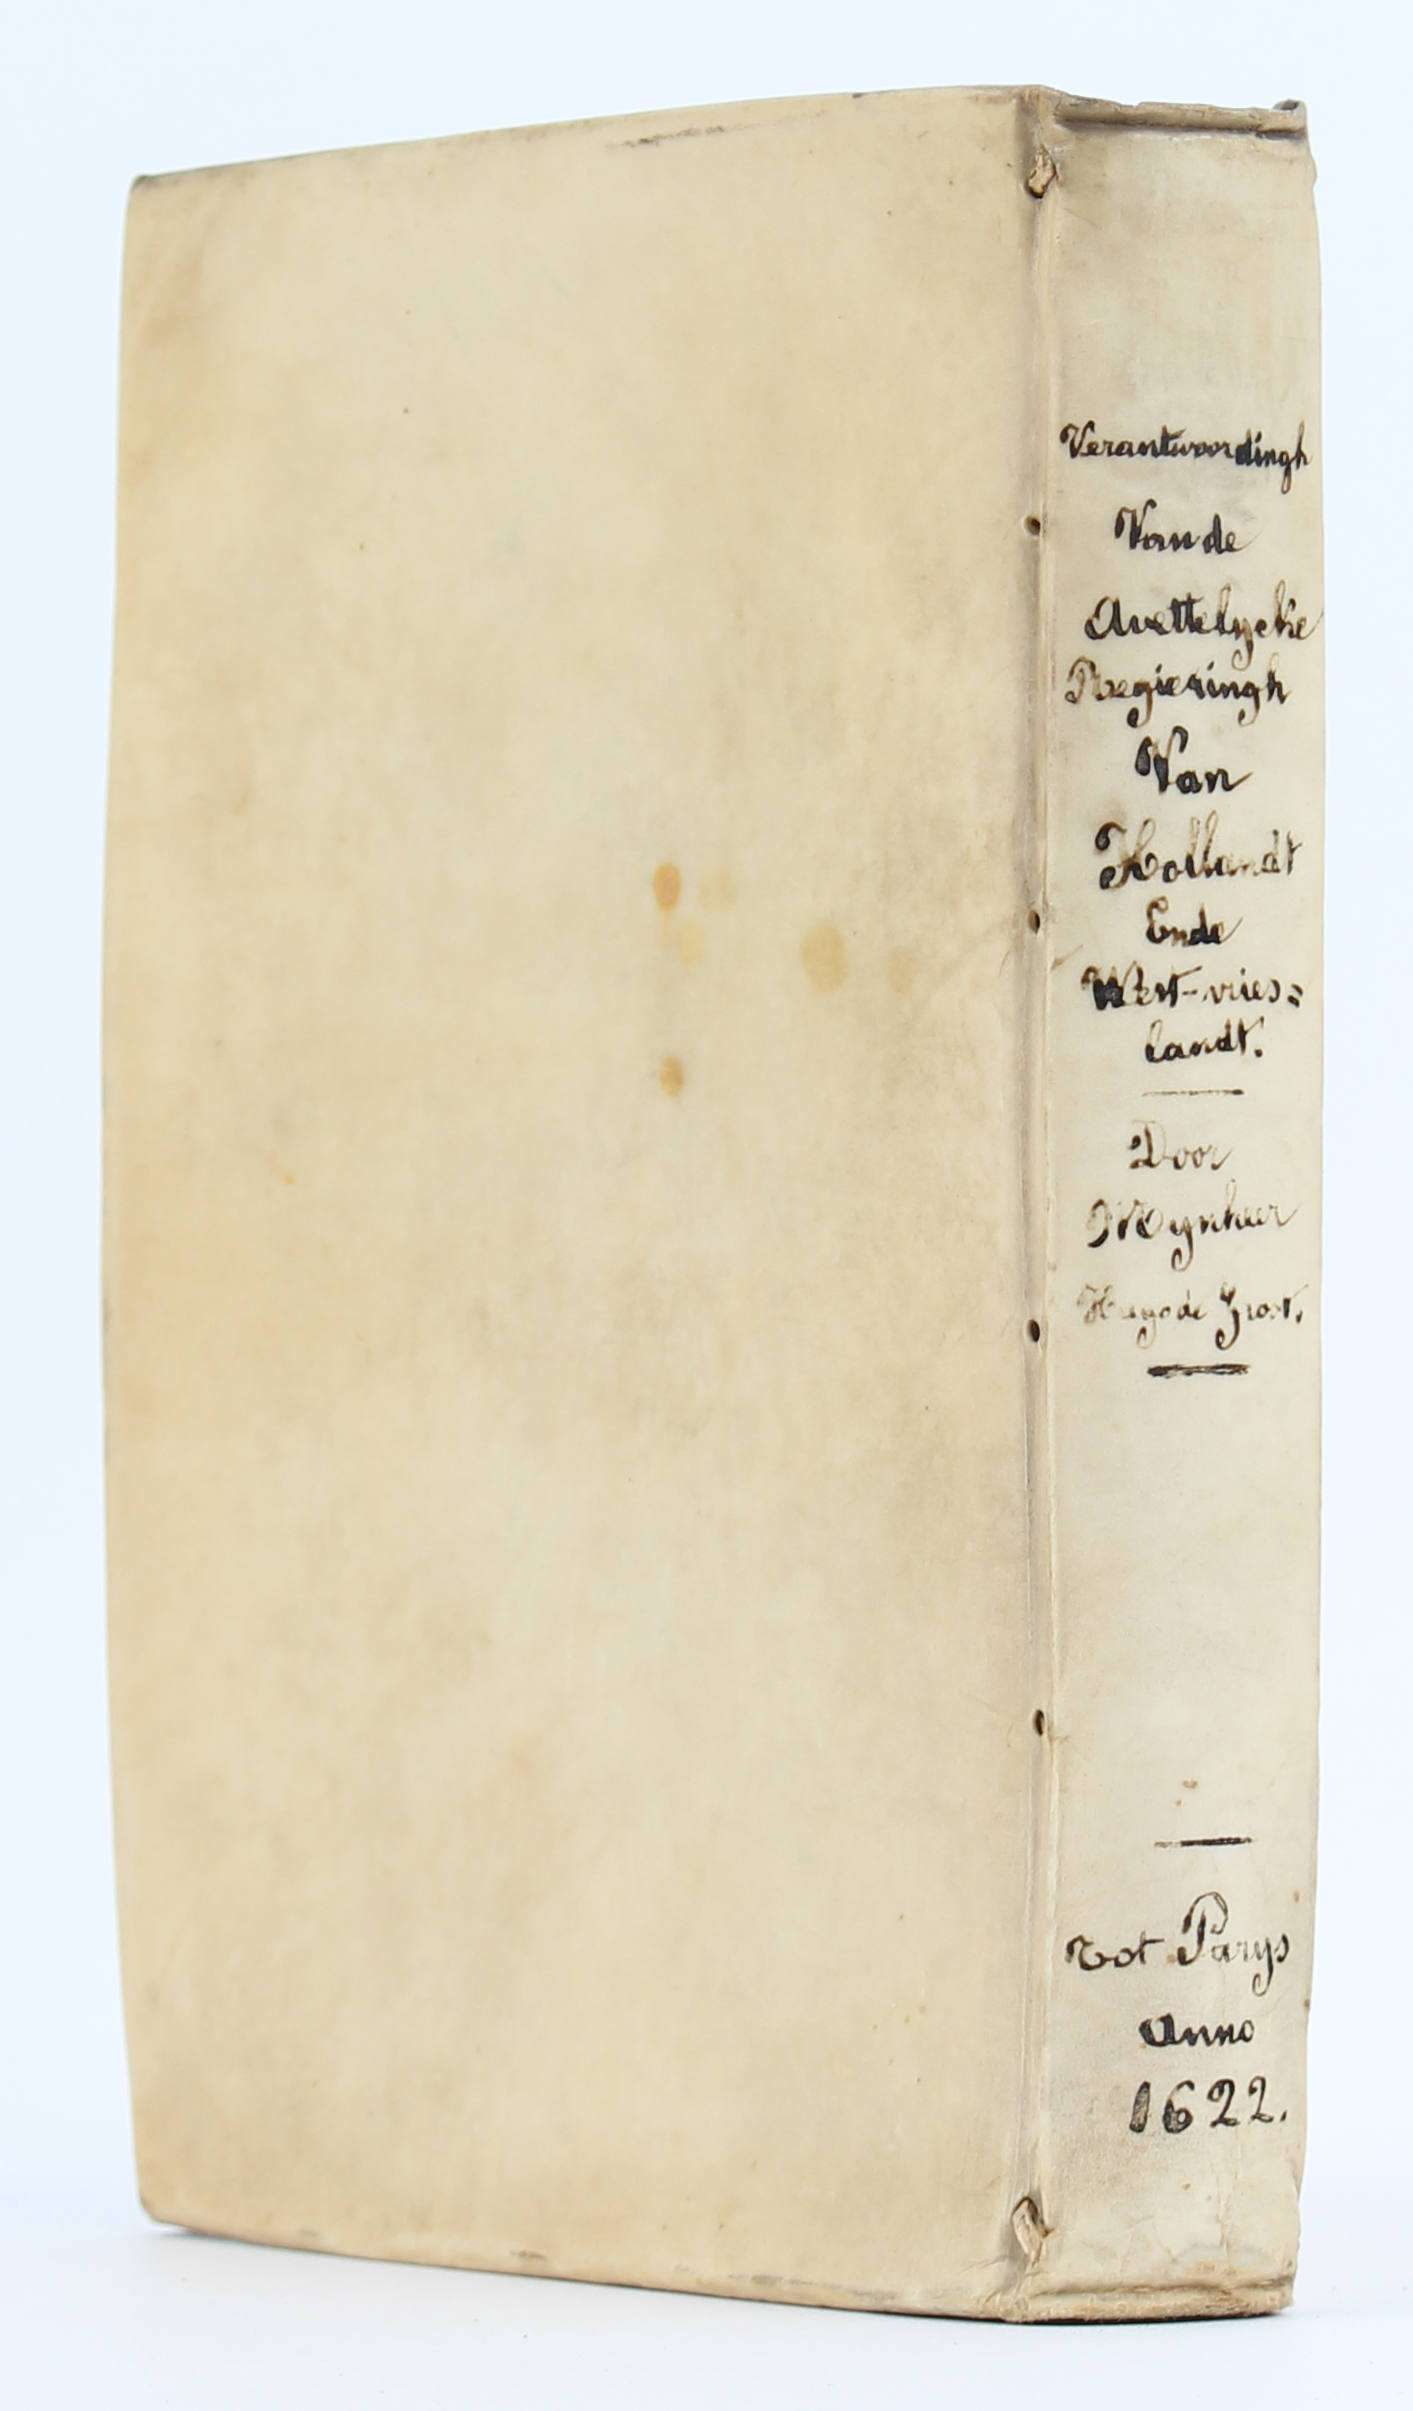 Verantwoordingh
Van de
Wettelycke
Regieringh
Van
Hollandt
Ende
West-vries=
landt.
Door
Mynheer
Hugo de Groot.
Tot Parys
Anno
1622.